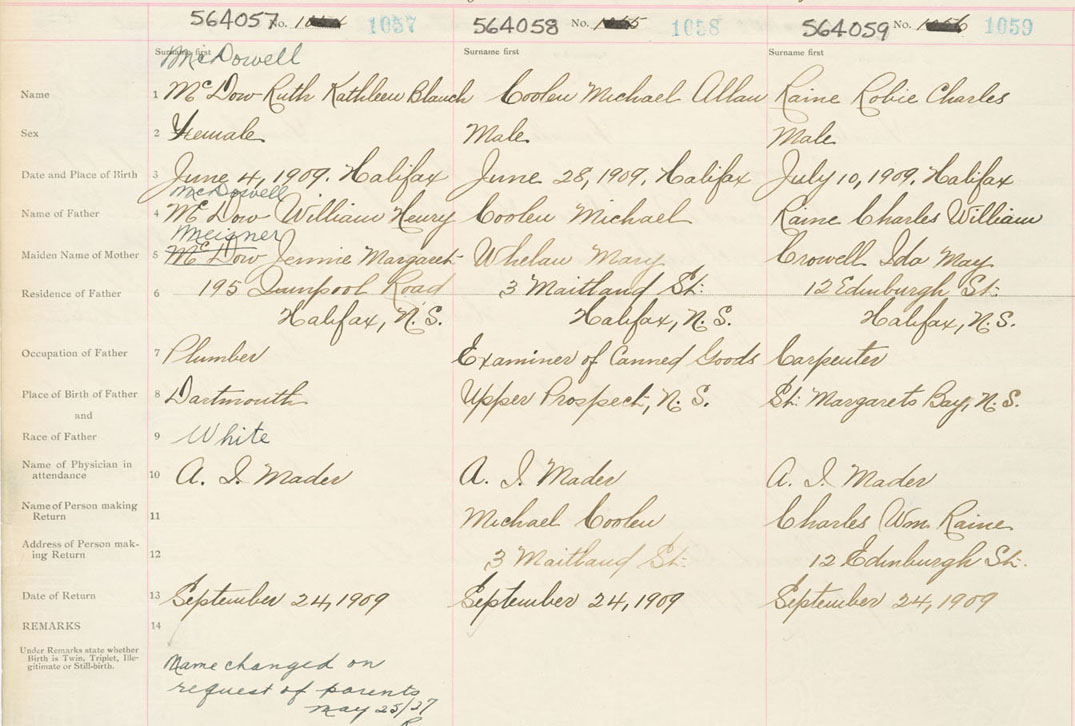 564057 No. 1057 564058 No. 1058 564059 No. 1059
Surname first Surname first Surname first
McDowell
Name 1 McDow Ruth Kathleen Blanch Coolen Michael Allan Raine Robie Charles
Sex 2 Female Male Male
Date and Place of Birth 3 June 4, 1909. Halifax June 28, 1909. Halifax July 10, 1909. Halifax
McDowell
Name of Father 4 McDow William Henry Coolen Michael Raine Charles William
Meigner
Maiden Name of Mother 5 McDow Jennie Margaret Whelan Mary Crowell Ida May
Residence of Father 6 195 Road 3 Maitland St. 12 Edinburgh St.
Halifax, N.S. Halifax, N.S. Halifax, N.S.
Occupation of Father 7 Plumber Examiner of Canned Goods Carpenter
Place of Birth of Father 8 Dartmouth Upper Prospect, N.S. St. Margarets Bay, N.S.
and
Race of Father 9 White
Name of Physician in
attendance 10 A. I. Mader A. I. Mader A. I. Mader
Name of Person making
Return 11 Michael Coolen Charles Wm. Raine
Address of Person mak-
ing Return 12 3 Maitland St. 12 Edinburgh St.
Date of Return 13 September 24, 1909 September 24, 1909 September 24, 1909
REMARKS 14
Under Remarks state whether
Birth is Twin, Triplet, Ille-
gitimate or Still-birth.
Name changed on
request of parents
May 25/37